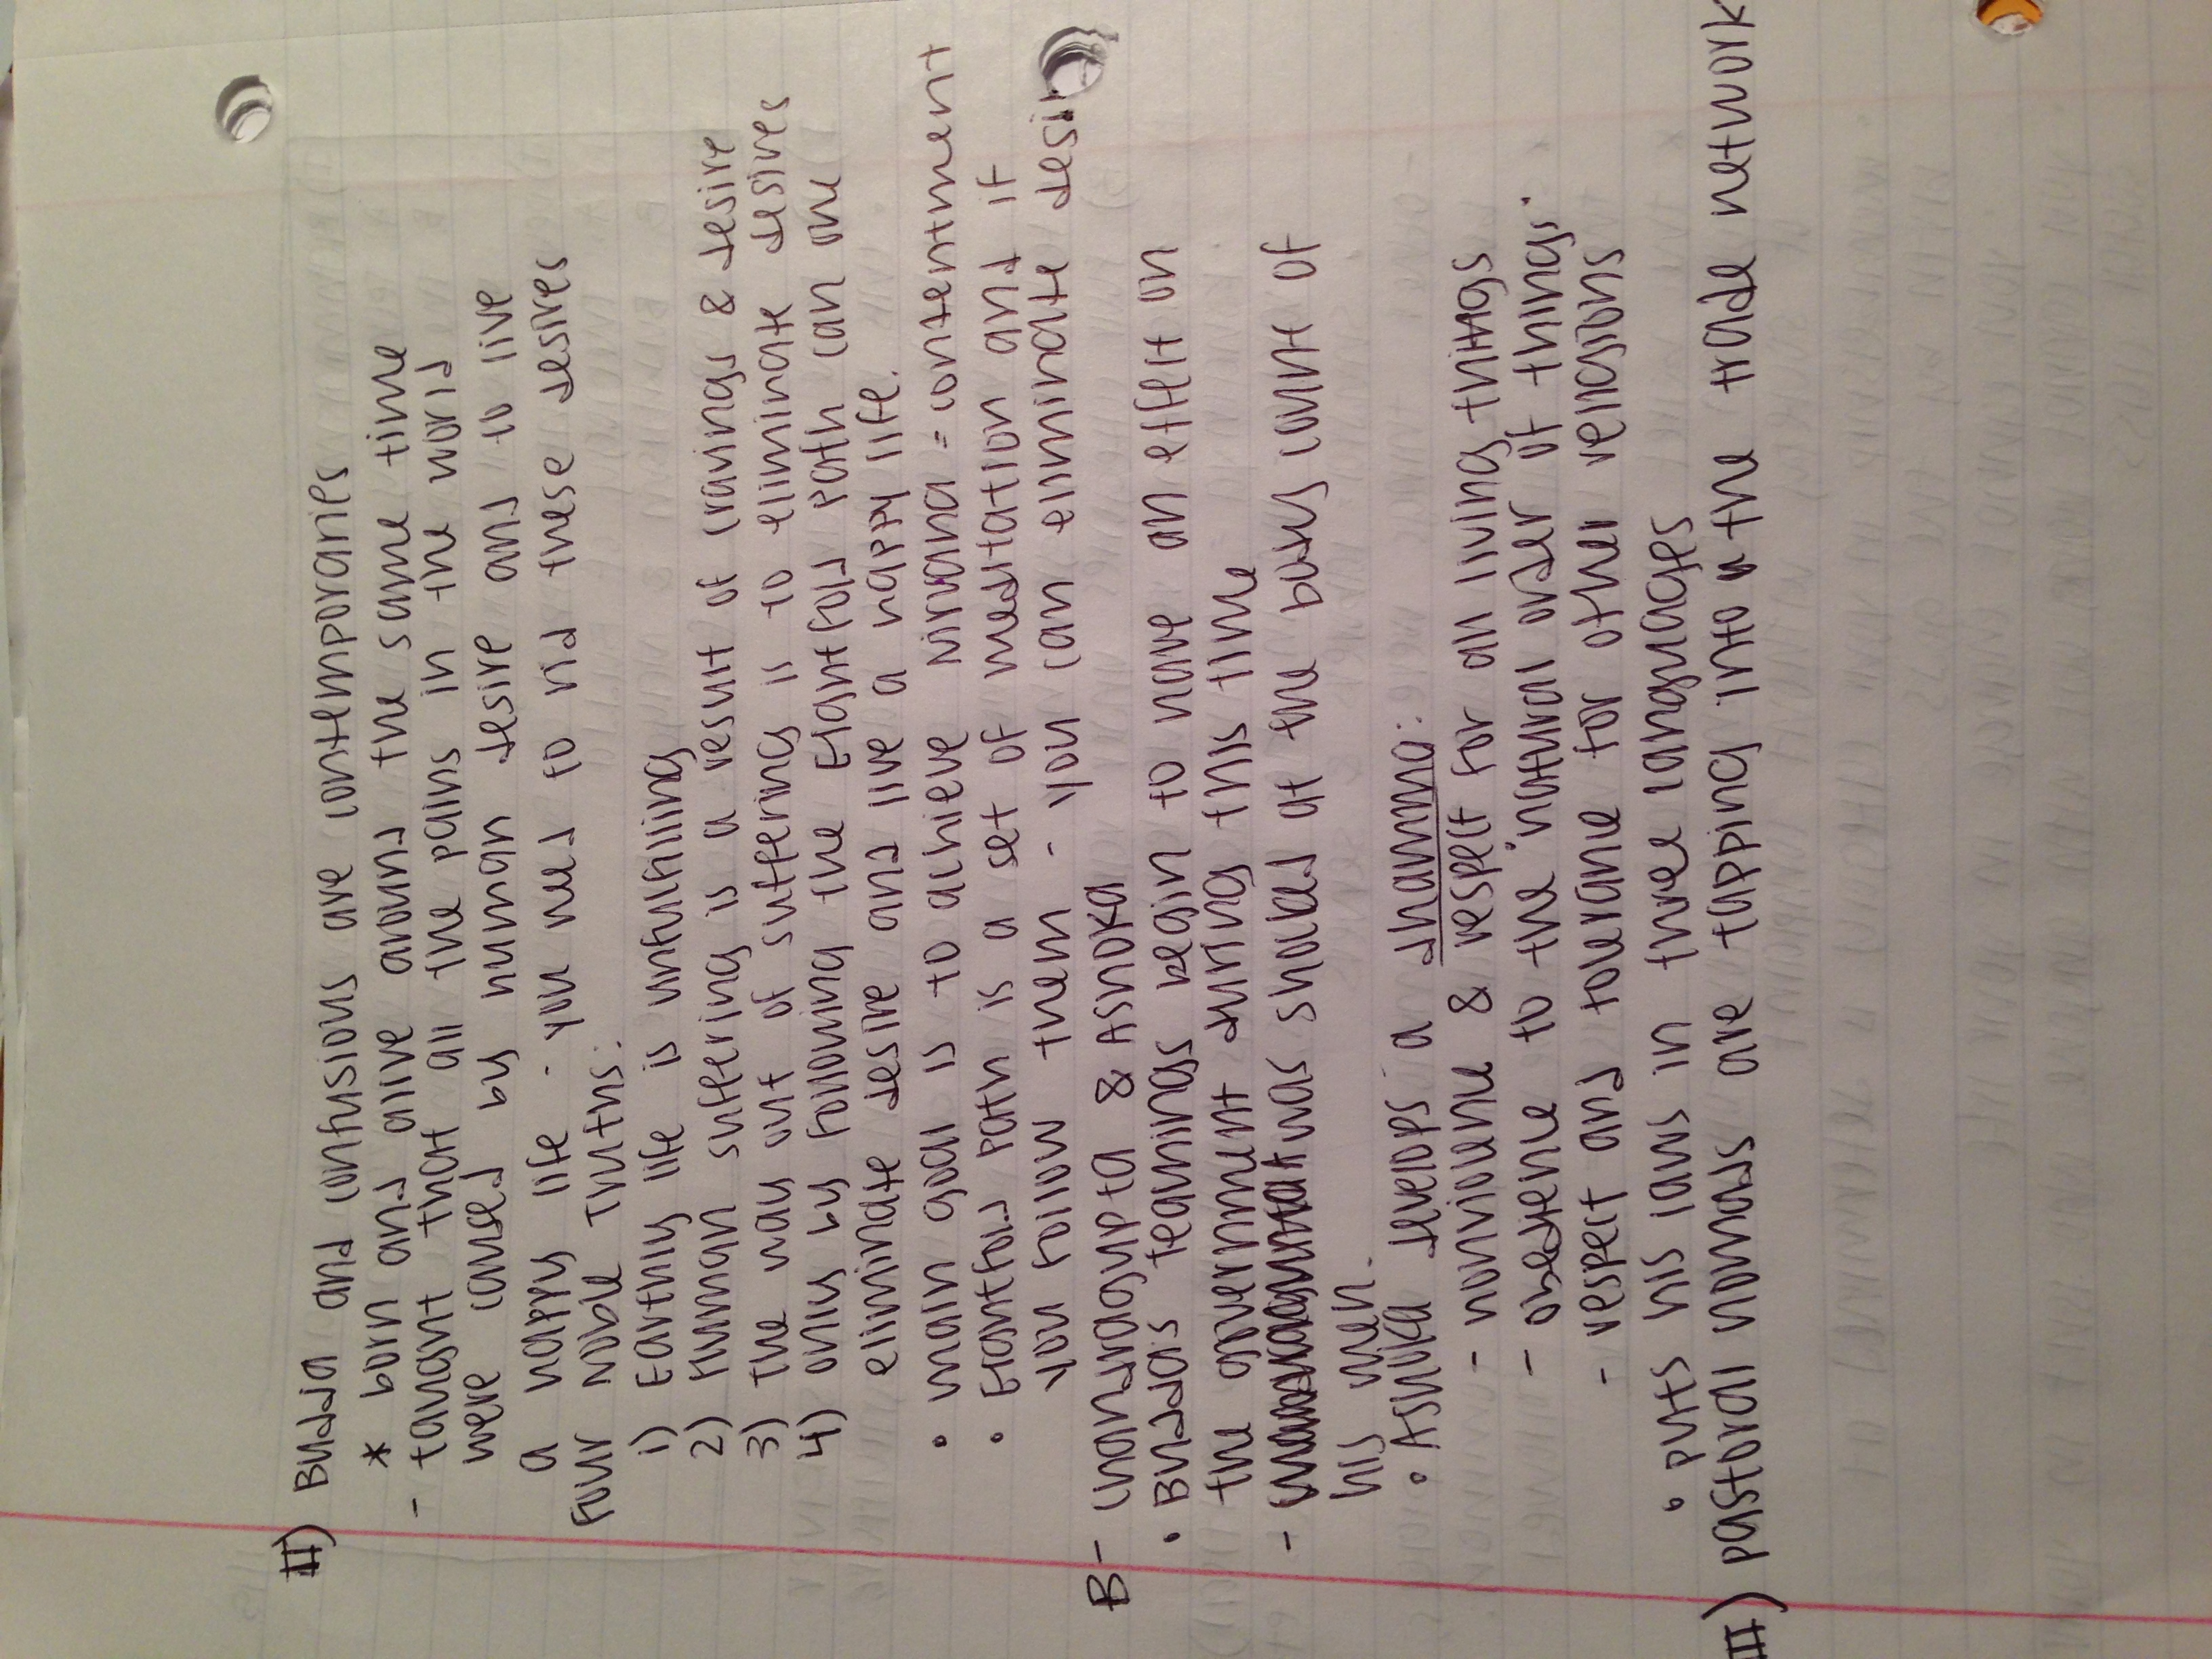 II) Budda and confusious are contemporaries
* born and alive around the same time
- taught that all the pains in the world
were caused by human desire and to live
a happy life - you need to rid these desires
Four Noble Truths:
1) Earthly life is unfulfilling
2) Human suffering is a result of cravings & desire
3) The way out of suffering is to eliminate desires
4) only by following the Eightfold path can one
eliminate desire and live a happy life.
• main goal is to achieve Nirvana = contentment
• Eightfold path is a set of meditation and if
you follow them - you can eliminate desir
B- Chandragupta & Ashoka
• Budda's teachings begin to have an effect on
the government during this time
- was shocked at the body count of
his men.
• Ashoka develops a dhamma:
- nonviolence & respect for all living things
- obedience to the "natural order of things."
- respect and tolerance for other religions
• puts his laws in three languages
III) pastoral nomads are tapping into the trade network